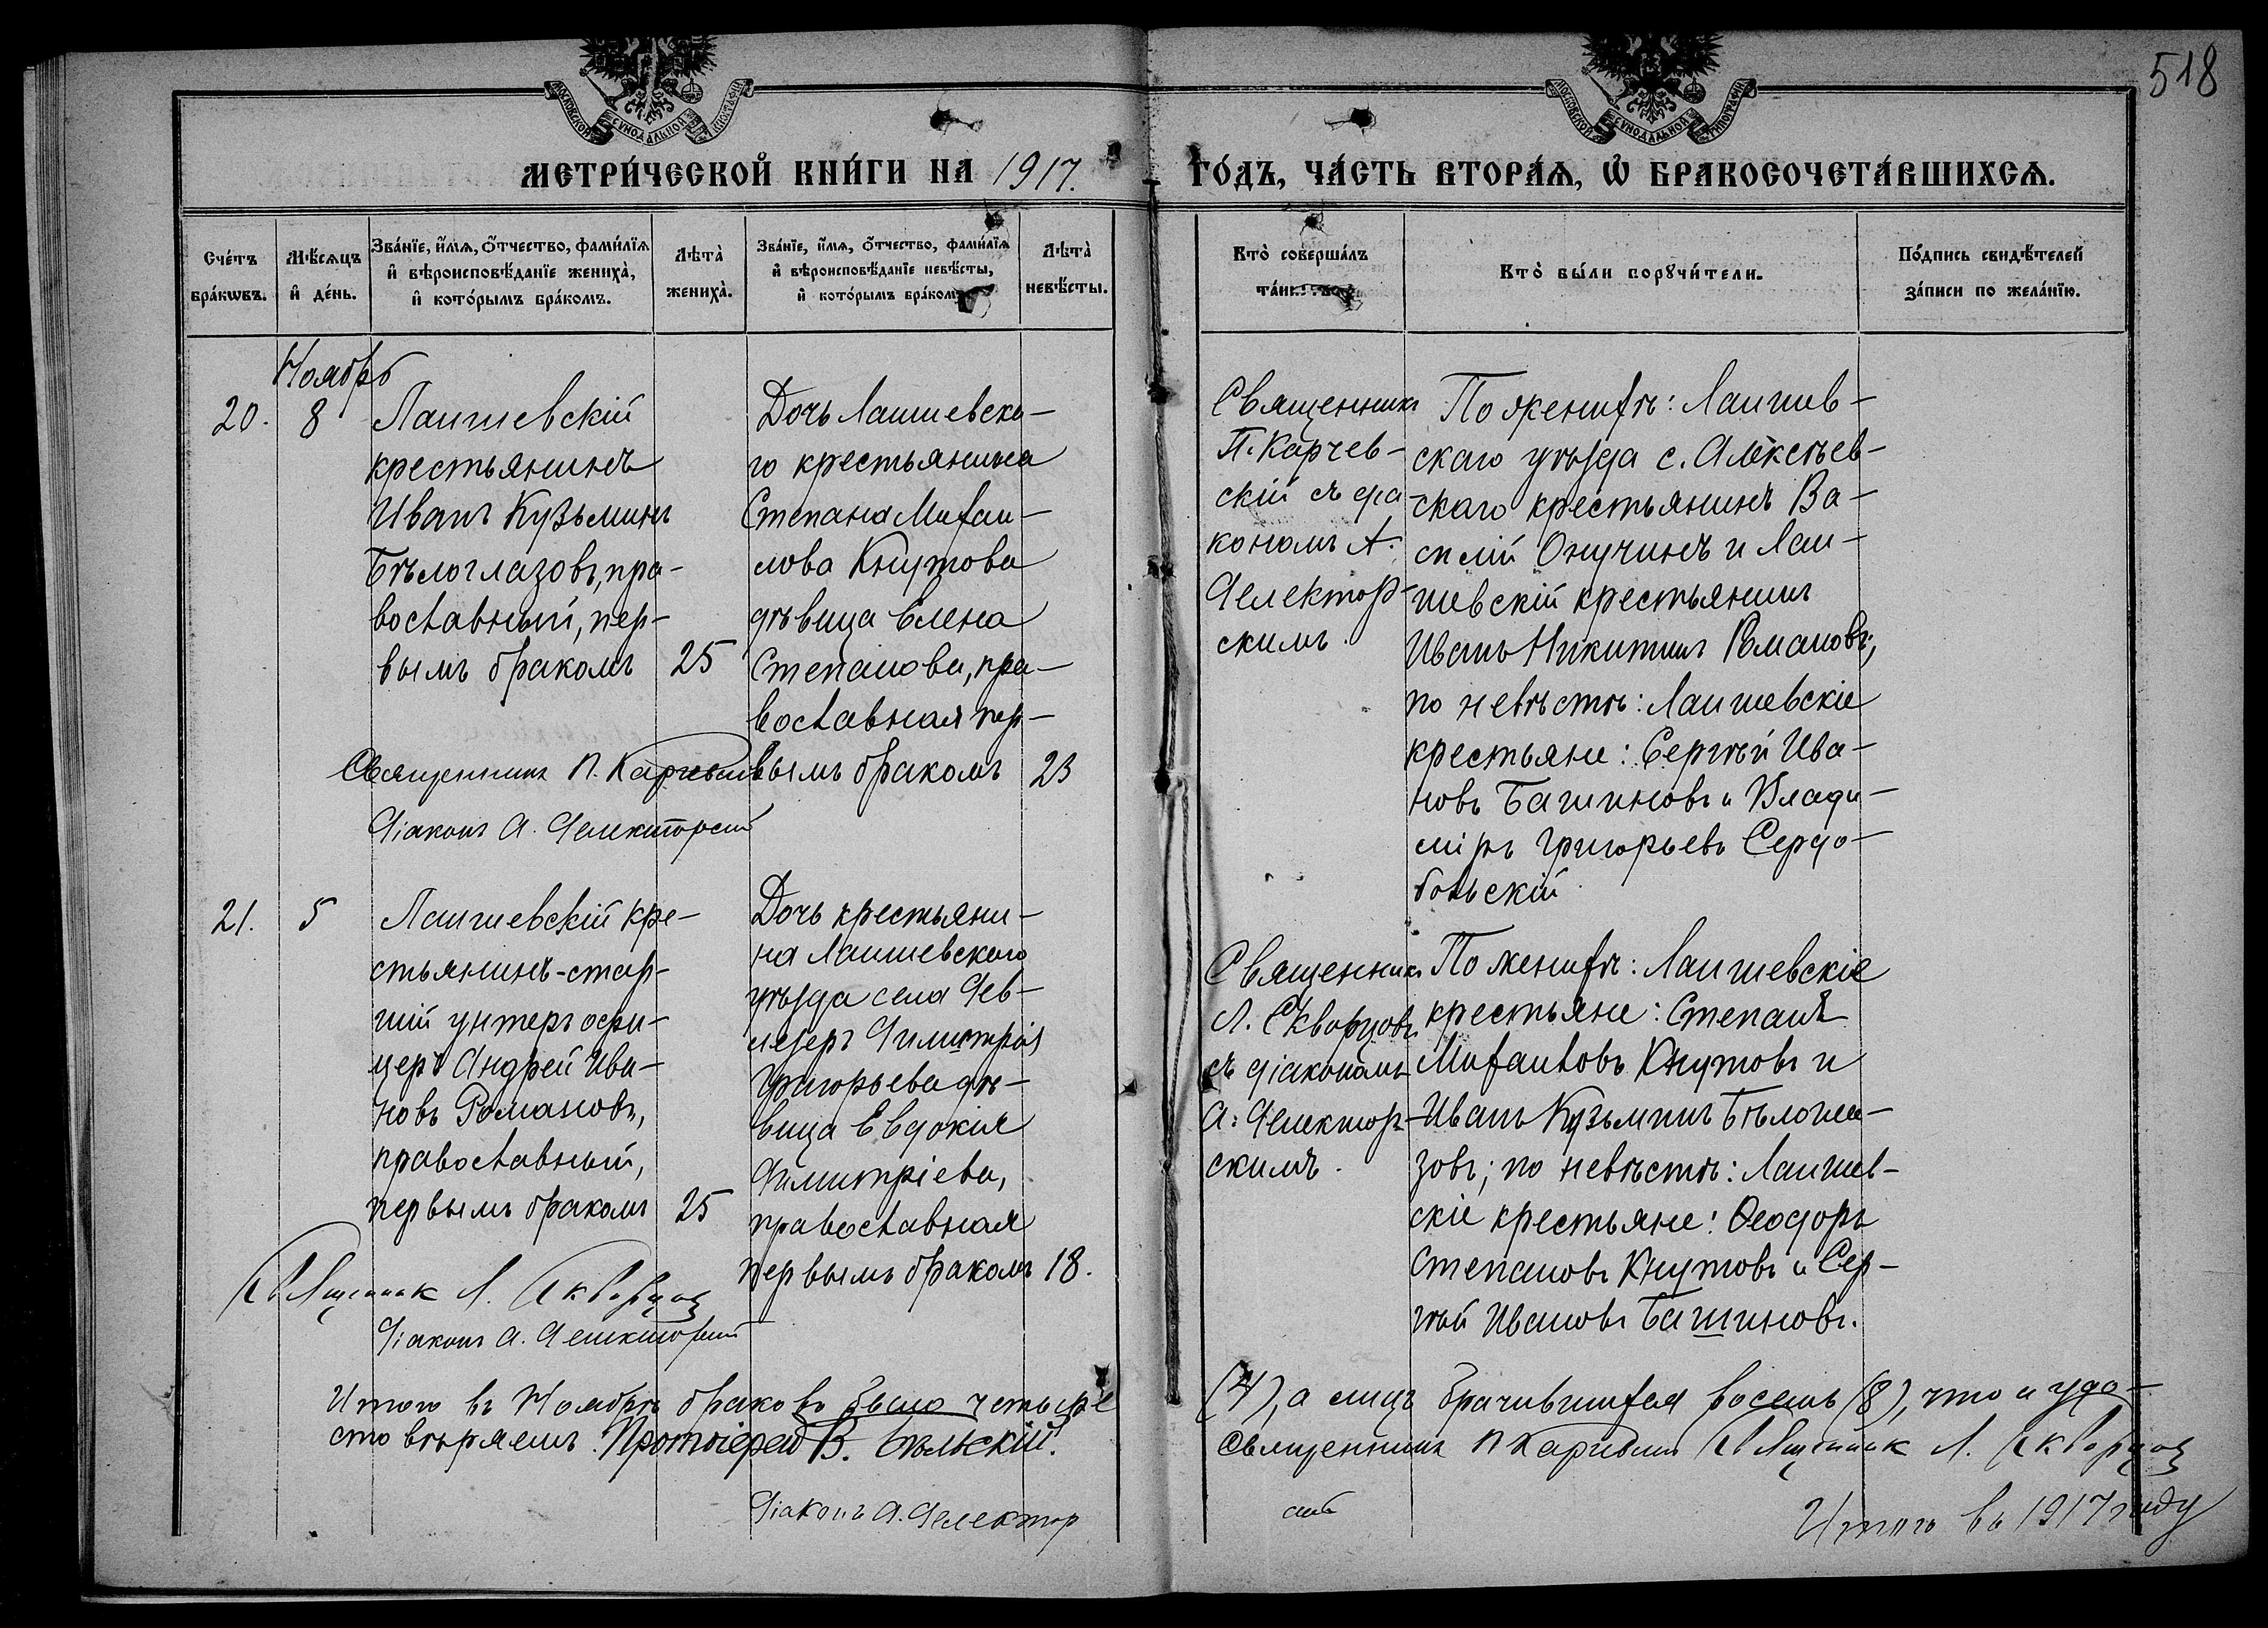 518
МОСКОВСКОЙ СУНОДАЛЬНОЙ ТИПОГРАФІИ
МОСКОВСКОЙ СУНОДАЛЬНОЙ ТИПОГРАФІИ
МЕТРИ́ЧЕСКОЙ КНИ́ГИ НА 1917.
ГО́ДЪ, ЧА́СТЬ ВТОРА́Ѧ, Ѽ БРАКОСОЧЕТА́ВШИХСѦ.
Сче́тъ
бра́кѡвъ.
Мѣ́сѧцъ
и҆ де́нь.
Зва́нїе, и҆́мѧ, ѻ҆́тчество, фами́лїѧ
и҆ вѣроисповѣ́данїе жениха̀,
и҆ кото́рымъ бра́комъ.
Лѣта̀
жениха̀.
Зва́нїе, и҆́мѧ, ѻ҆́тчество, фами́лїѧ
и҆ вѣроисповѣ́данїе невѣ́сты,
и҆ кото́рымъ бра́ком
Лѣта̀
невѣ́сты.
Кто̀ соверша́лъ
та́ин
Кто̀ бы́ли порꙋчи́тели.
По́дпись свидѣ́телей
за́писи по жела́нїю.
Ноябрь
20.
8
Лаишевскій
крестьянинъ
Иванъ Кузьминъ
Бѣлоглазовъ, пра-
вославный, пер-
вымъ бракомъ
25
Дочь Лаишевска-
го крестьянина
Степана Михаи-
лова Кнутова
дѣвица Елена
Степанова, пра-
вославная пер-
вымъ бракомъ
23
Священникъ П. Карчевскій
Діаконъ А. Делекторскій
Священникъ
П. Карчев-
скій съ діа-
кономъ А.
Делектор-
скимъ.
По женихѣ: Лаишев-
скаго уѣзда с. Алексѣев-
скаго крестьянинъ Ва-
силій Онучинъ и Лаи-
шевскій крестьянинъ
Иванъ Никитинъ Романовъ;
по невѣстѣ: Лаишевскіе
крестьяне: Сергѣй Ива-
новъ Башиновъ и Влади-
міръ Григорьевъ Сердо-
больскій
21.
5
Лаишевскій кре-
стьянинъ-стар-
шій унтеръ офи-
церъ Андрей Ива-
новъ Романовъ,
православный,
первымъ бракомъ
25
Дочь крестьяни-
на Лаишевского
уѣзда села Дев-
лезеръ Димитрія
Григорьева дѣ-
вица Евдокія
Димитріева,
православная
первымъ бракомъ
18.
Священник Л. Скворцов
Діаконъ А. Делекторскій
Священникъ
Л. Скворцовъ
съ діакономъ
А. Делектор-
скимъ.
По женихѣ: Лаишевскіе
крестьяне: Степанъ
Михаиловъ Кнутовъ и
Иванъ Кузьминъ Бѣлогла-
зовъ; по невѣстѣ: Лаишев-
скіе крестьяне: Ѳеодоръ
Степановъ Кнутовъ и Сер-
гѣй Ивановъ Башиновъ.
Итого въ Ноябрѣ браковъ было четыре
(4), а лицъ брачившихся восемь (8), что и удо-
стовѣряемъ. Протоіерей В. Бѣльскій.
Священникъ П Карчевскій Священник Л. Скворцов
Діаконъ А. Делектор
скій
Итого въ 1917 году